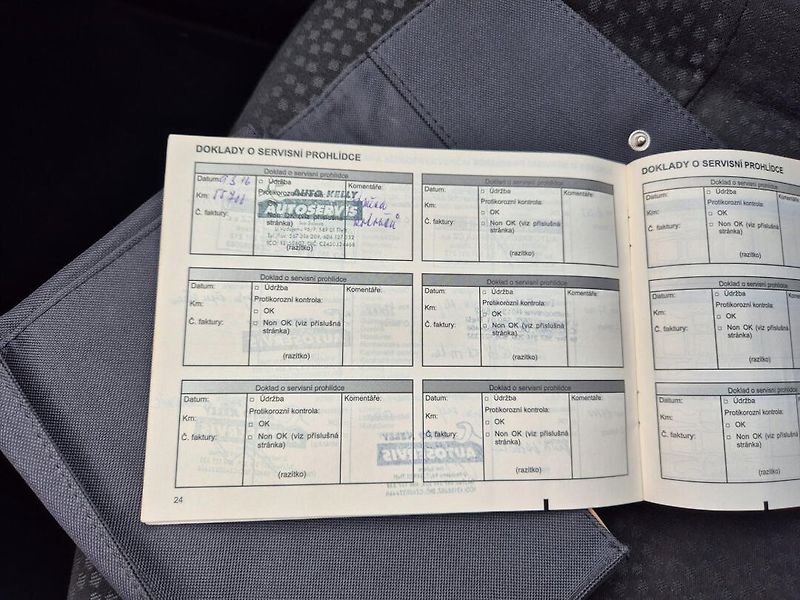 DOKLADY O SERVISNÍ PROHLÍDCE
Doklad o servisní prohlídce
Datum:
Údržba
Komentáře:
Km:
Protikorozní
AUTO KELLY
AUTOSERVIS
Č. faktury:
Non OK (viz příslušná
stránka)
(razítko)
Doklad o servisní prohlídce
Datum:
Údržba
Komentáře:
Km:
Protikorozní kontrola:
OK
Č. faktury:
Non OK (viz příslušná
stránka)
(razítko)
Doklad o servisní prohlídce
Datum:
Údržba
Komentáře:
Km:
Protikorozní kontrola:
OK
Č. faktury:
Non OK (viz příslušná
stránka)
(razítko)
Doklad o servisní prohlídce
Datum:
Údržba
Komentáře:
Km:
Protikorozní kontrola:
OK
Č. faktury:
Non OK (viz příslušná
stránka)
(razítko)
Doklad o servisní prohlídce
Datum:
Údržba
Komentáře:
Km:
Protikorozní kontrola:
OK
Č. faktury:
Non OK (viz příslušná
stránka)
(razítko)
Doklad o servisní prohlídce
Datum:
Údržba
Komentáře:
Km:
Protikorozní kontrola:
OK
Č. faktury:
Non OK (viz příslušná
stránka)
(razítko)
24
DOKLADY O SERVISNÍ PROHLÍDCE
Doklad o servisní prohlídce
Datum:
Údržba
Km:
Protikorozní kontrola:
OK
Č. faktury:
Non OK (viz příslušná
stránka)
(razítko)
Doklad o servisní prohlídce
Datum:
Údržba
Km:
Protikorozní kontrola:
OK
Č. faktury:
Non OK (viz příslušná
stránka)
(razítko)
Doklad o servisní prohlídce
Datum:
Údržba
Km:
Protikorozní kontrola:
OK
Č. faktury:
Non OK (viz příslušná
stránka)
(razítko)